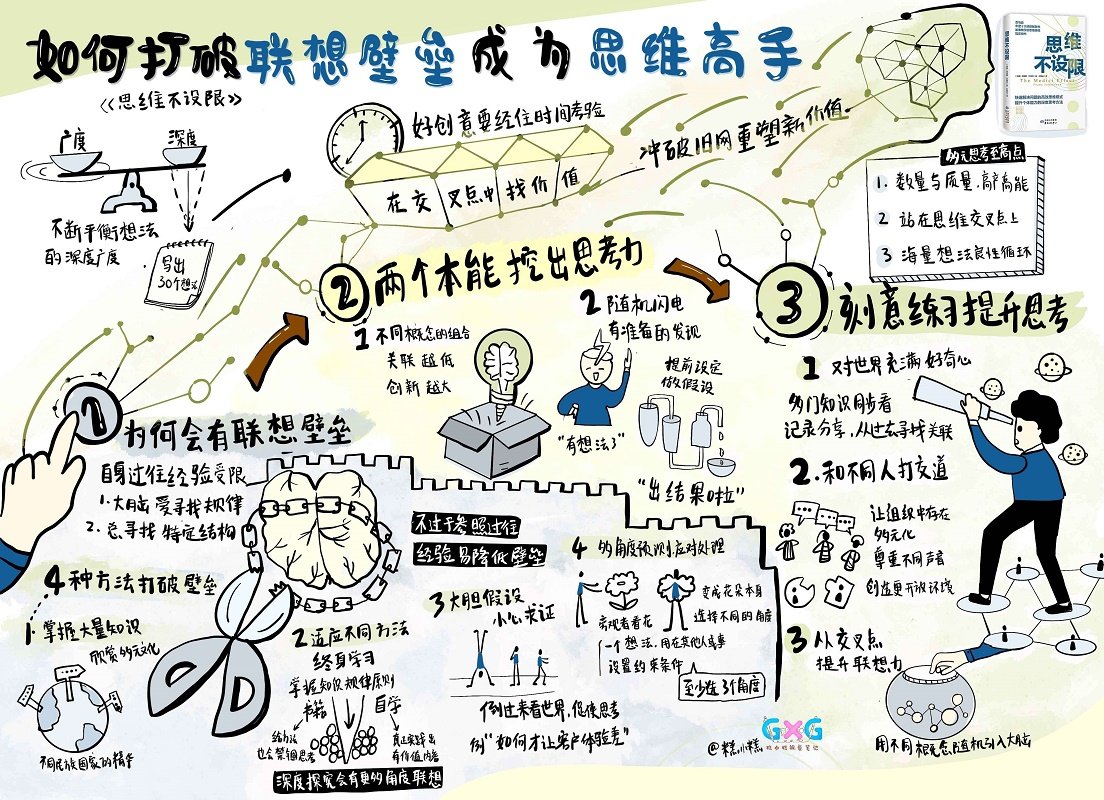 如何打破联想壁垒成为思维高手
《思维不设限》
思维
不设限
The Medici Effect
广度
深度
不断平衡想法
的深度广度
写出
30个想法
好创意要经住时间考验
在交叉点中找价值
冲破旧网重塑新价值
多元思考至高点
1. 数量与质量,高产高能
2 站在思维交叉点上
3 海量想法良性循环
1
为何会有联想壁垒
自身过往经验受限
1. 大脑爱寻找规律
2. 总寻找特定结构
4种方法打破壁垒
1. 掌握大量知识
欣赏多元文化
不同民族国家的精华
2 适应不同方法
终身学习
掌握知识规律原则
书籍
自学
给方法
也会禁锢思考
真正实践出
有价值内容
深度探究会有更多角度联想
不过于参照过往
经验易降低壁垒
3 大胆假设
小心求证
倒过来看世界,促使思考
例"如何才让客户体验差"
4 多角度预测应对处理
旁观者看花
变成花朵本身
选择不同的角度
一个想法,用在其他人或事
设置约束条件
至少选3个角度
2
两个本能挖出思考力
1 不同概念的组合
关联越低
创新越大
2 随机闪电
有准备的发现
提前设定
做假设
"有想法了"
"出结果啦"
3
刻意练习提升思考
1 对世界充满好奇心
多门知识同步看
记录分享,从过去寻找关联
2. 和不同人打交道
让组织中存在
多元化
尊重不同声音
创造更开放环境
3 从交叉点
提升联想力
用不同概念随机引入大脑
@糕小糕
GXG